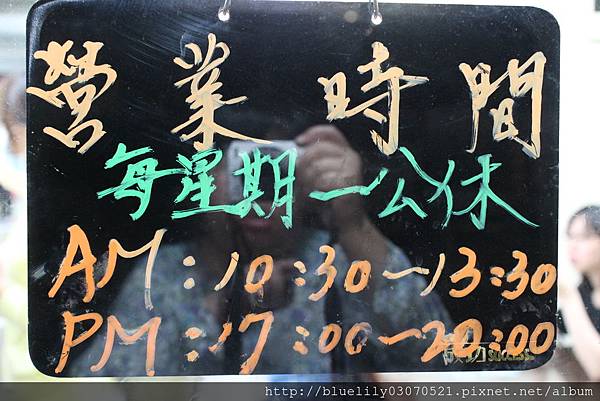 營業時間
每星期一公休
AM:10:30~13:30
PM:17:00~20:00
成功 SUCCESS
http://bluelily03070521.pixnet.net/album